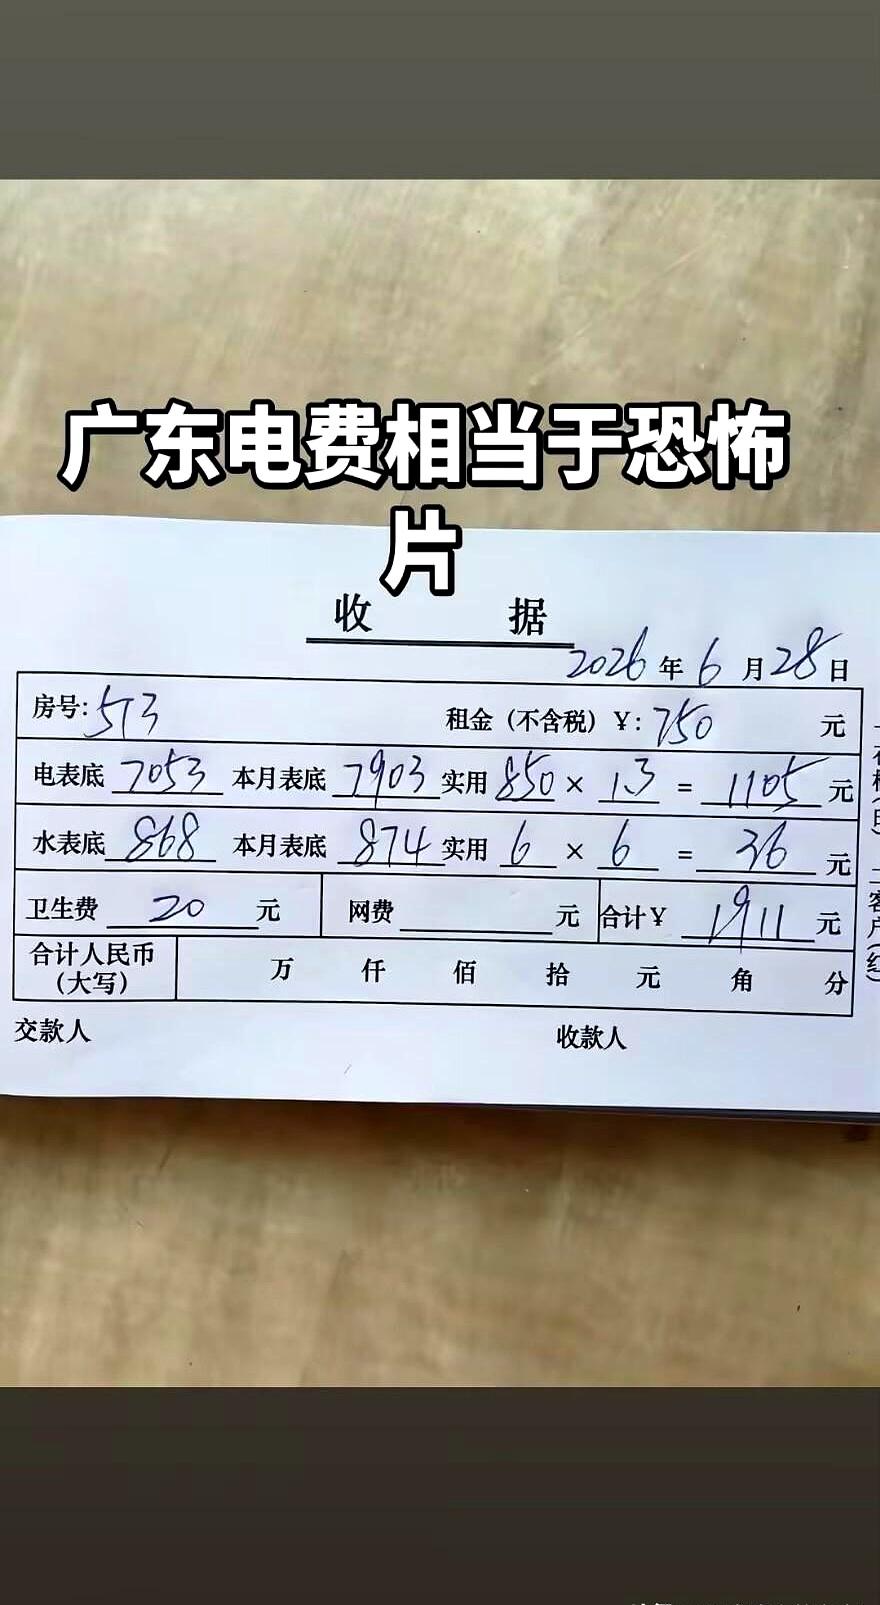 广东电费相当于恐怖
片
收 据
2026年6月28日
房号:513 租金（不含税）￥:750元
电表底 7053 本月表底 7903 实用 850 × 1.3 = 1105元
水表底 868 本月表底 874 实用 6 × 6 = 36元
卫生费 20 元 网费 元 合计￥ 1911元
合计人民币
（大写） 万 仟 佰 拾 元 角 分
交款人 收款人
二客户(红)